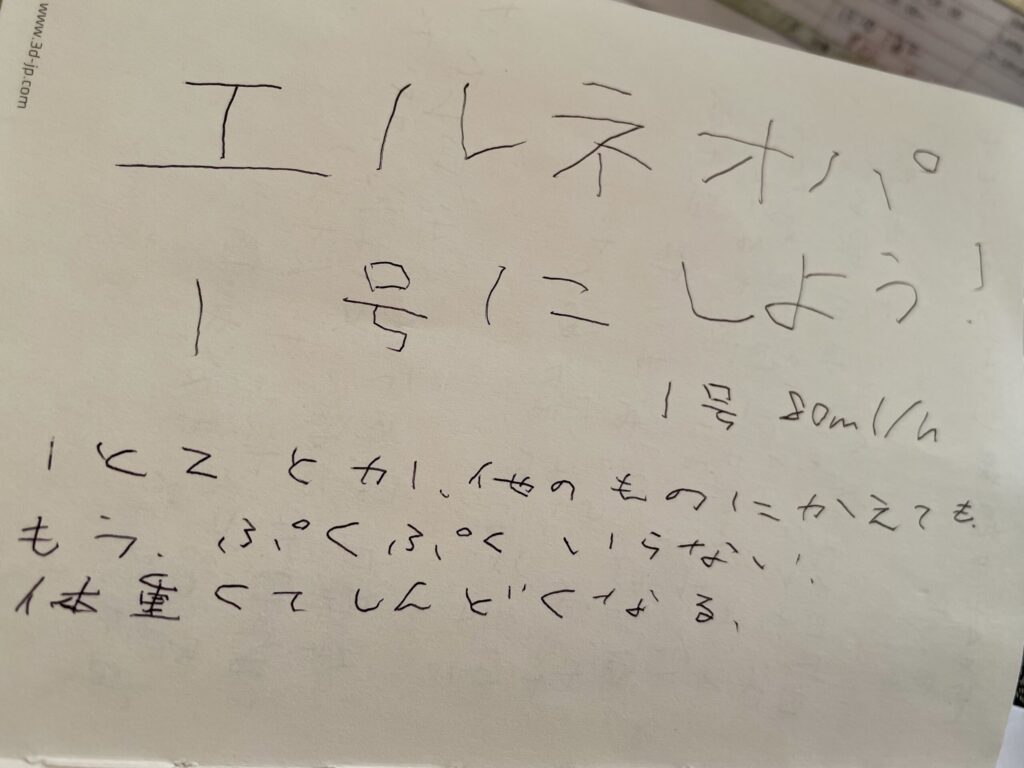 www.3d-jp.com
エルネオパ
1号にしよう!
1号 80ml/h
1と2とか、他のものにかえても、
もう、ぷくぷくいらない!
体重くてしんどくなる、